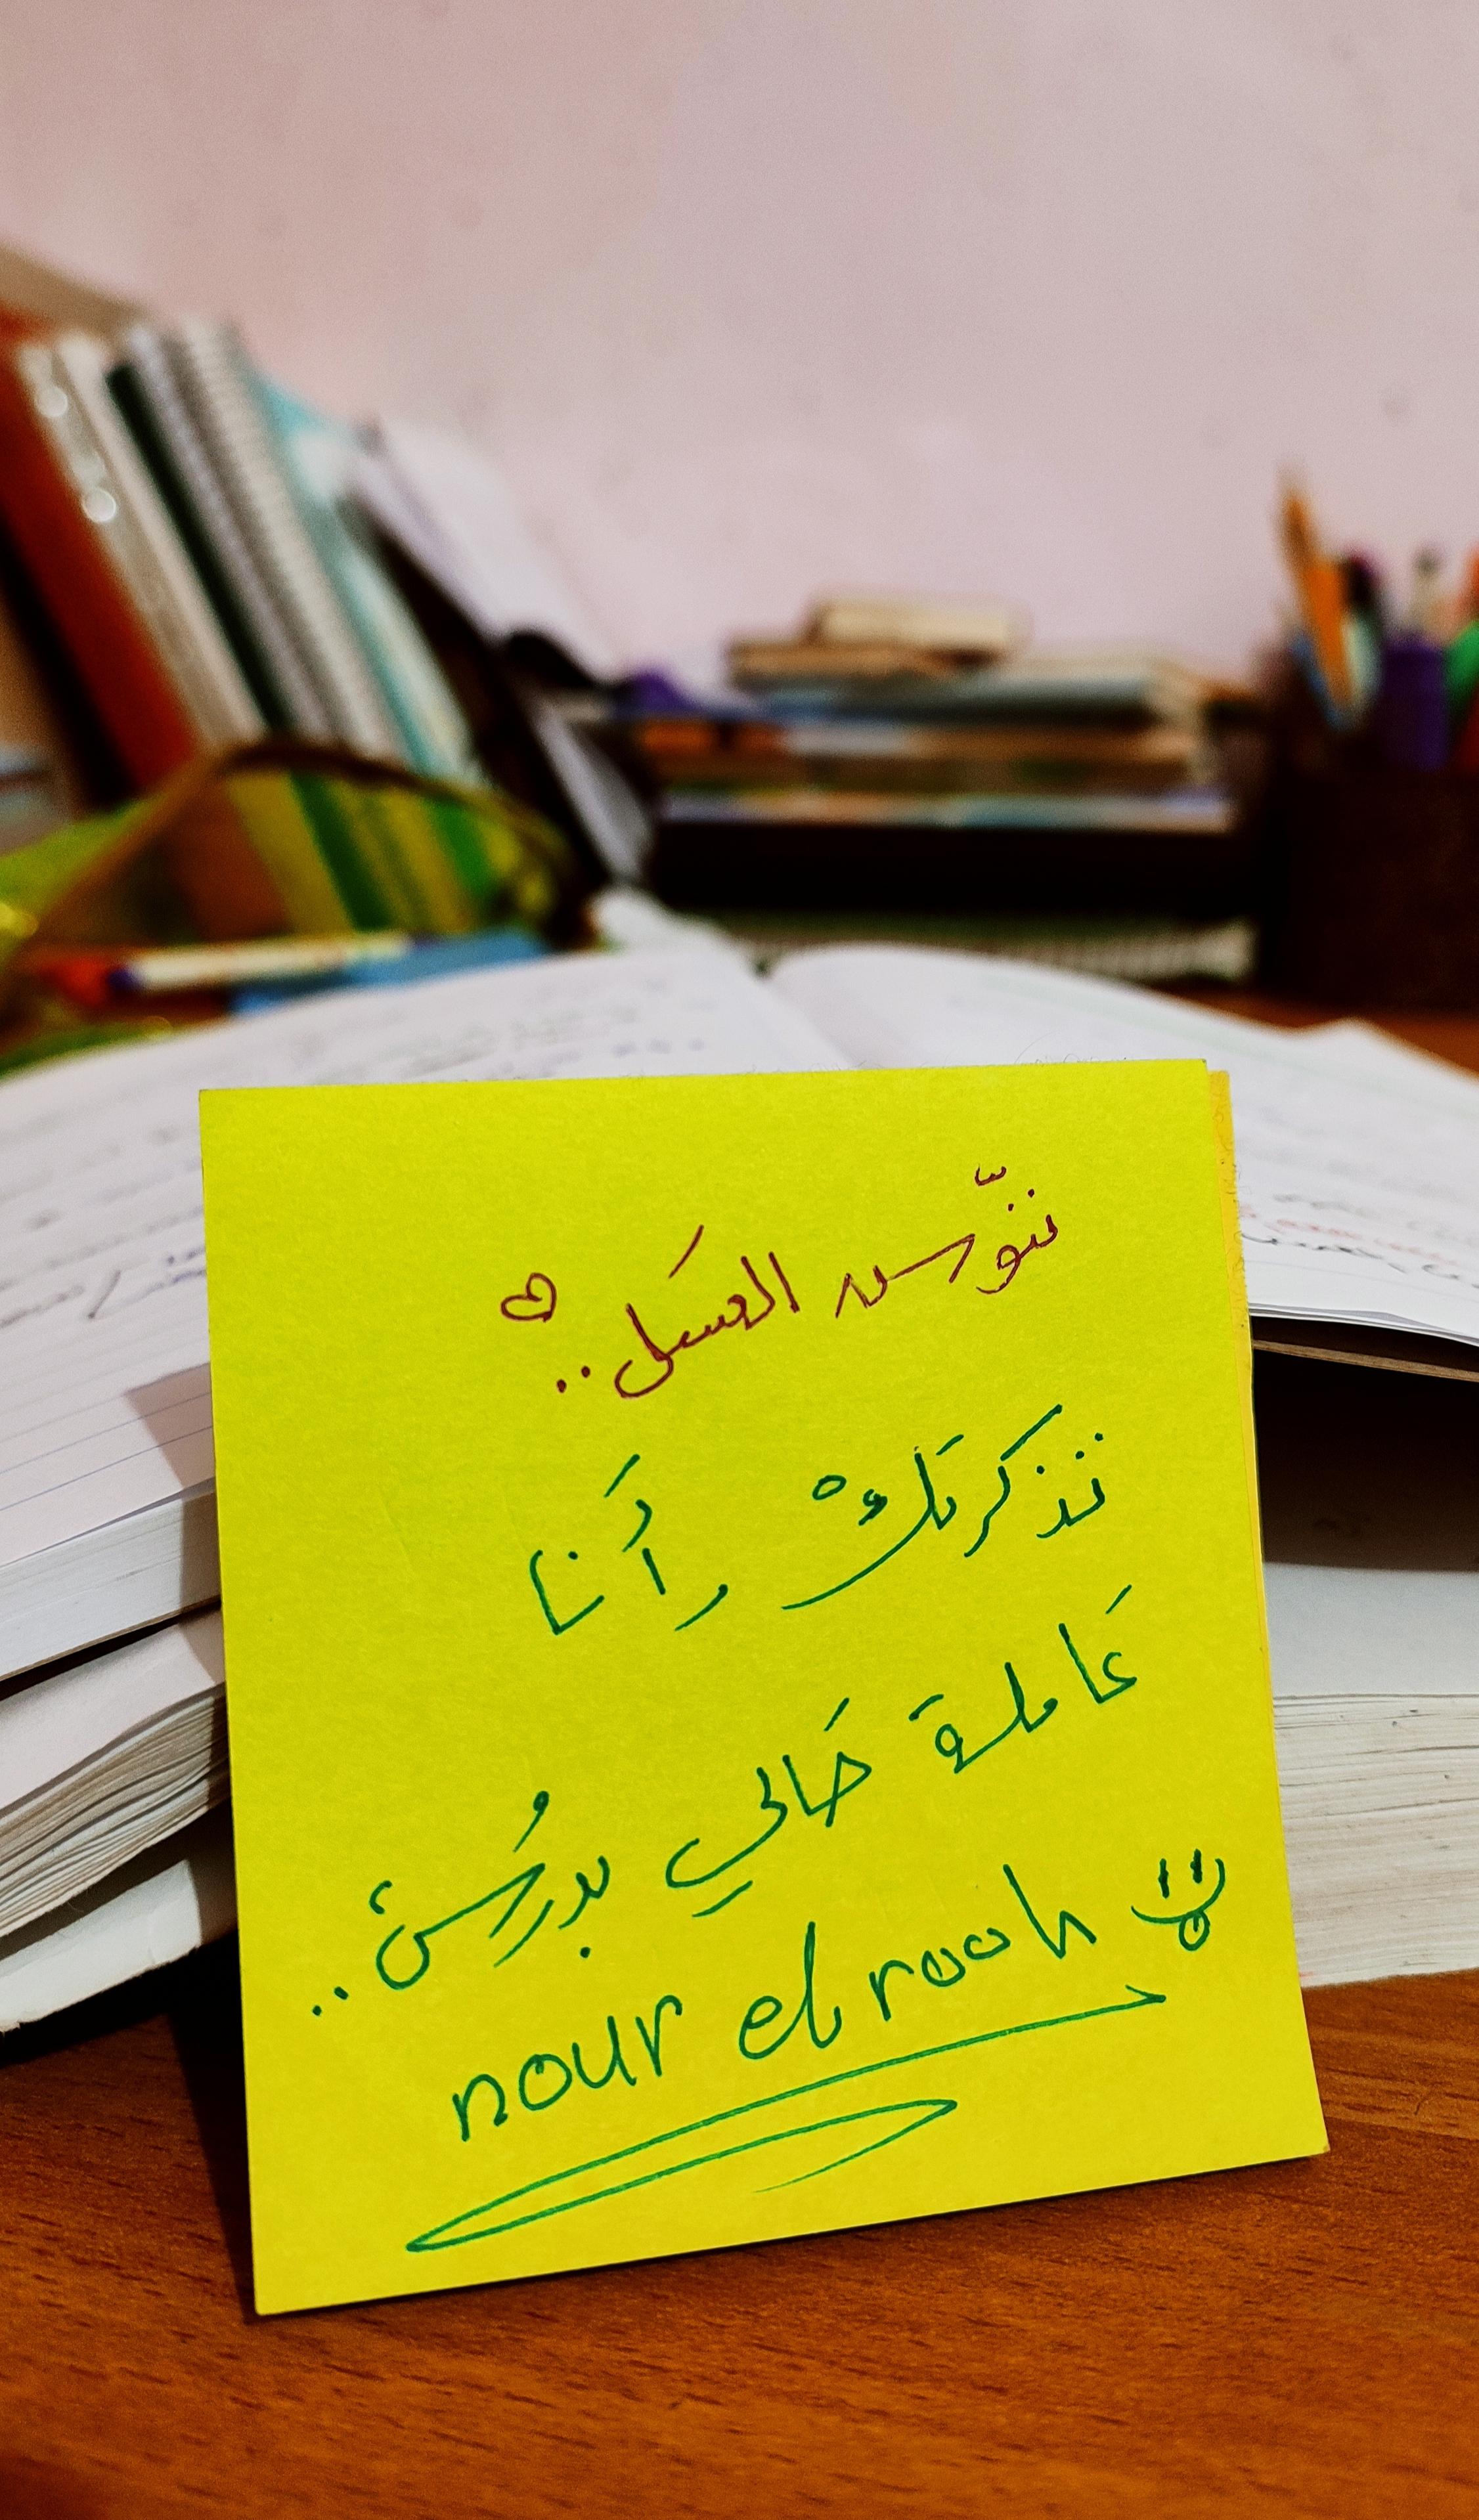 ننّوسه العسَل.. ♡
تذكرتَكْ وأَنا
عَاملة حَالي بدرُسْ..
nour el rooh